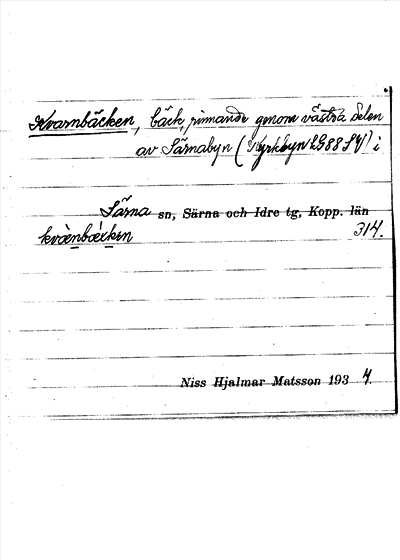 Kvarnbäcken, bäck, rinnande genom västra delen
av Särnabyn (Kyrkbyn EG88SV) i
Särna sn, Särna och Idre tg, Kopp. län
kvàːnbækːen 314.
Niss Hjalmar Matsson 1934.